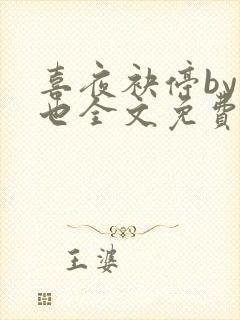 喜夜袂停by
也全文免費
王婆